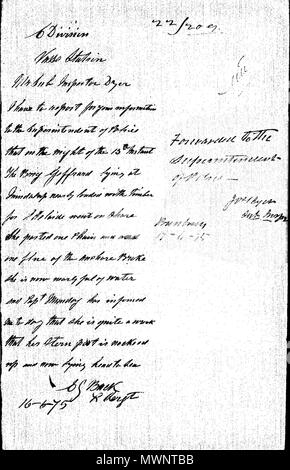 22/209
6 Division
Vasse Station
Sub Inspector Dyer
I have to report for your information
to the Superintendent of Police
that on the night of the 13th Instant
The Brig Geffrard lying at
Quindalup nearly loaded with timber
for Adelaide went on shore
She parted one Chain and
one fluke of the anchor Broke
she is now nearly full of water
and Capt Munday has informed
me to day that she is quite a wreck
that her Stern post is nocked
up and now lying head to sea
Back
L Sergt
16-6-75
Forwarded to the
Superintendent
of Police
Dyer
Sub Insp
Bunbury
75
alamy
Image ID: MWNTBB
www.alamy.com